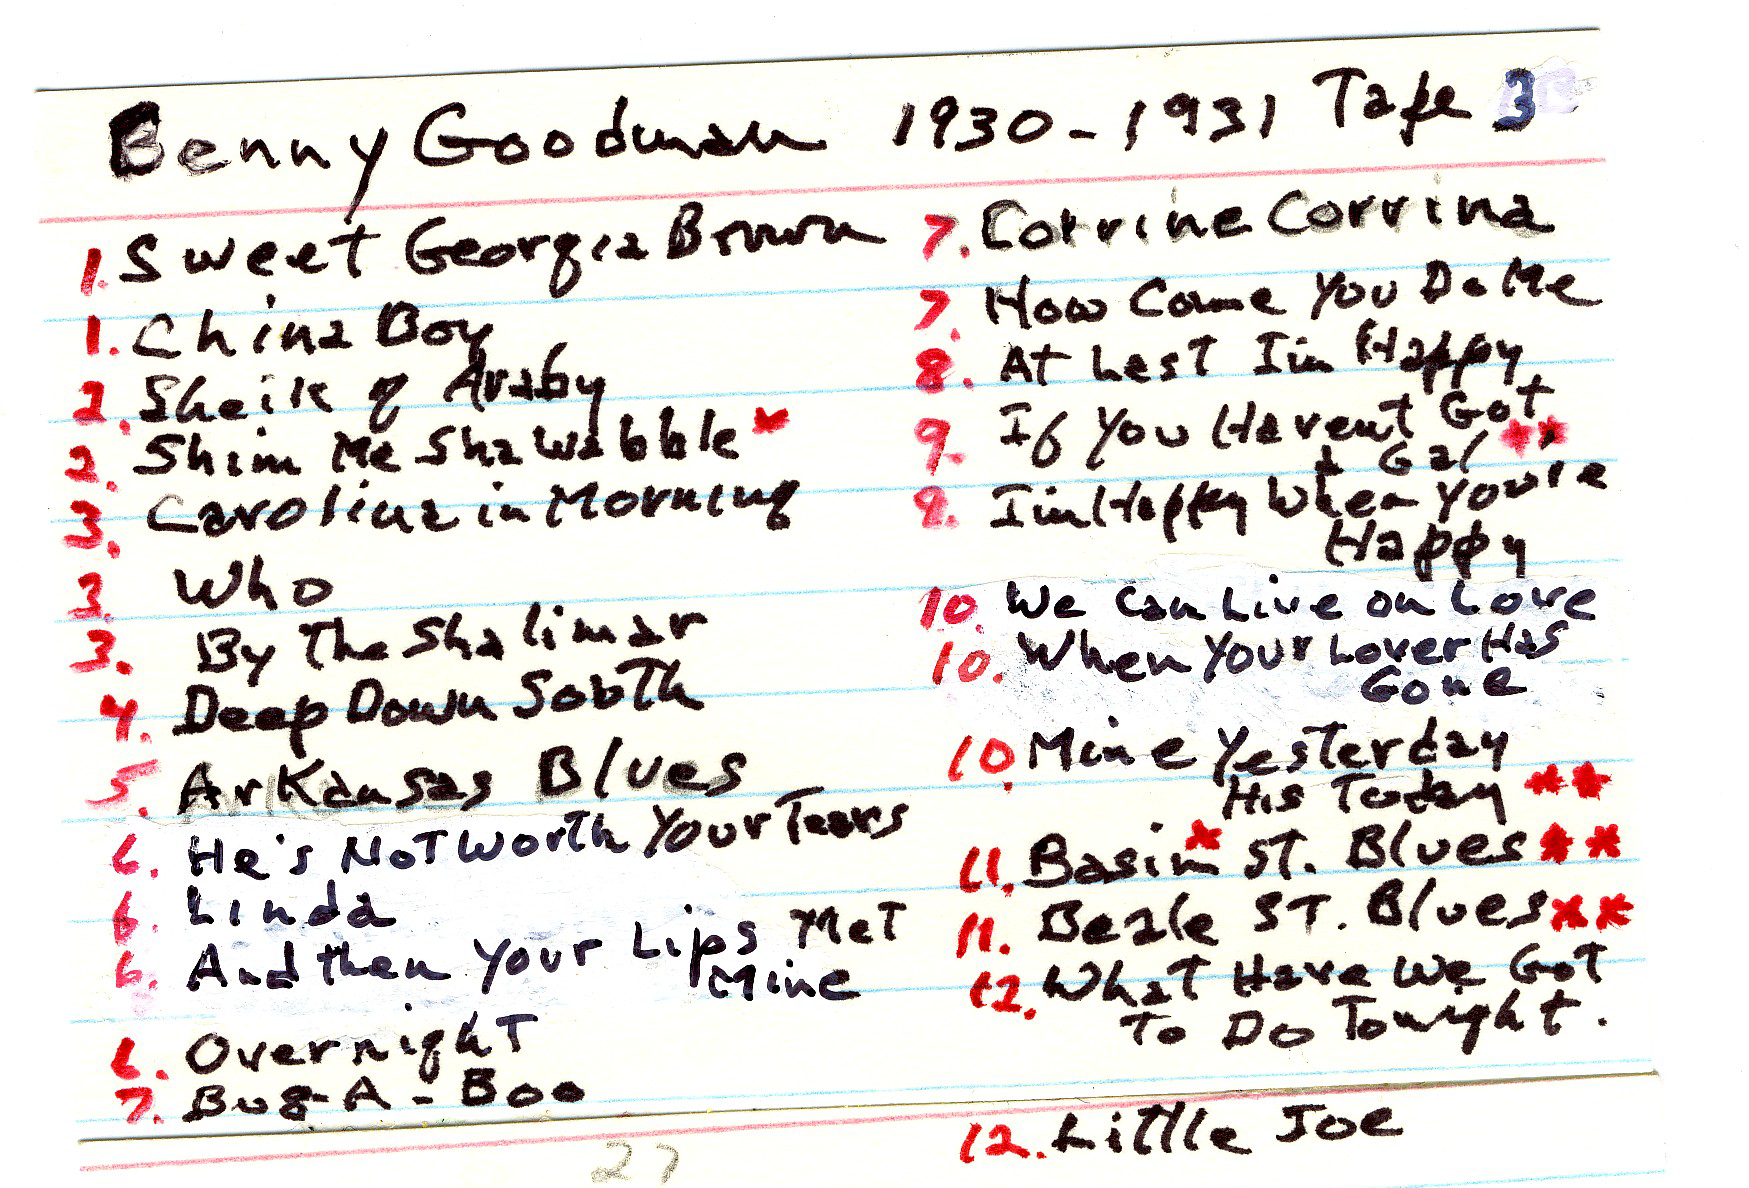 Benny Goodman 1930-1931 Tape 3
1. Sweet Georgia Brown
1. China Boy
2. Sheik of Araby
2. Shim Me Sha Wabble *
3. Carolina in Morning
3. Who
3. By The Shalimar
4. Deep Down South
5. Arkansas Blues
6. He's Not Worth Your Tears
6. Linda
6. And then Your Lips Met
Mine
6. Overnight
7. Bug-A-Boo
27
7. Corrine Corrina
7. How Come You Do Me
8. At Last I'm Happy
9. If You Havent Got
A Gal **
9. I'm Happy When You're
Happy
10. We Can Live on Love
10. When Your Lover Has
Gone
10. Mine Yesterday
His Today **
11. Basin * St. Blues **
11. Beale ST. Blues **
12. What Have We Got
To Do Tonight.
12. Little Joe